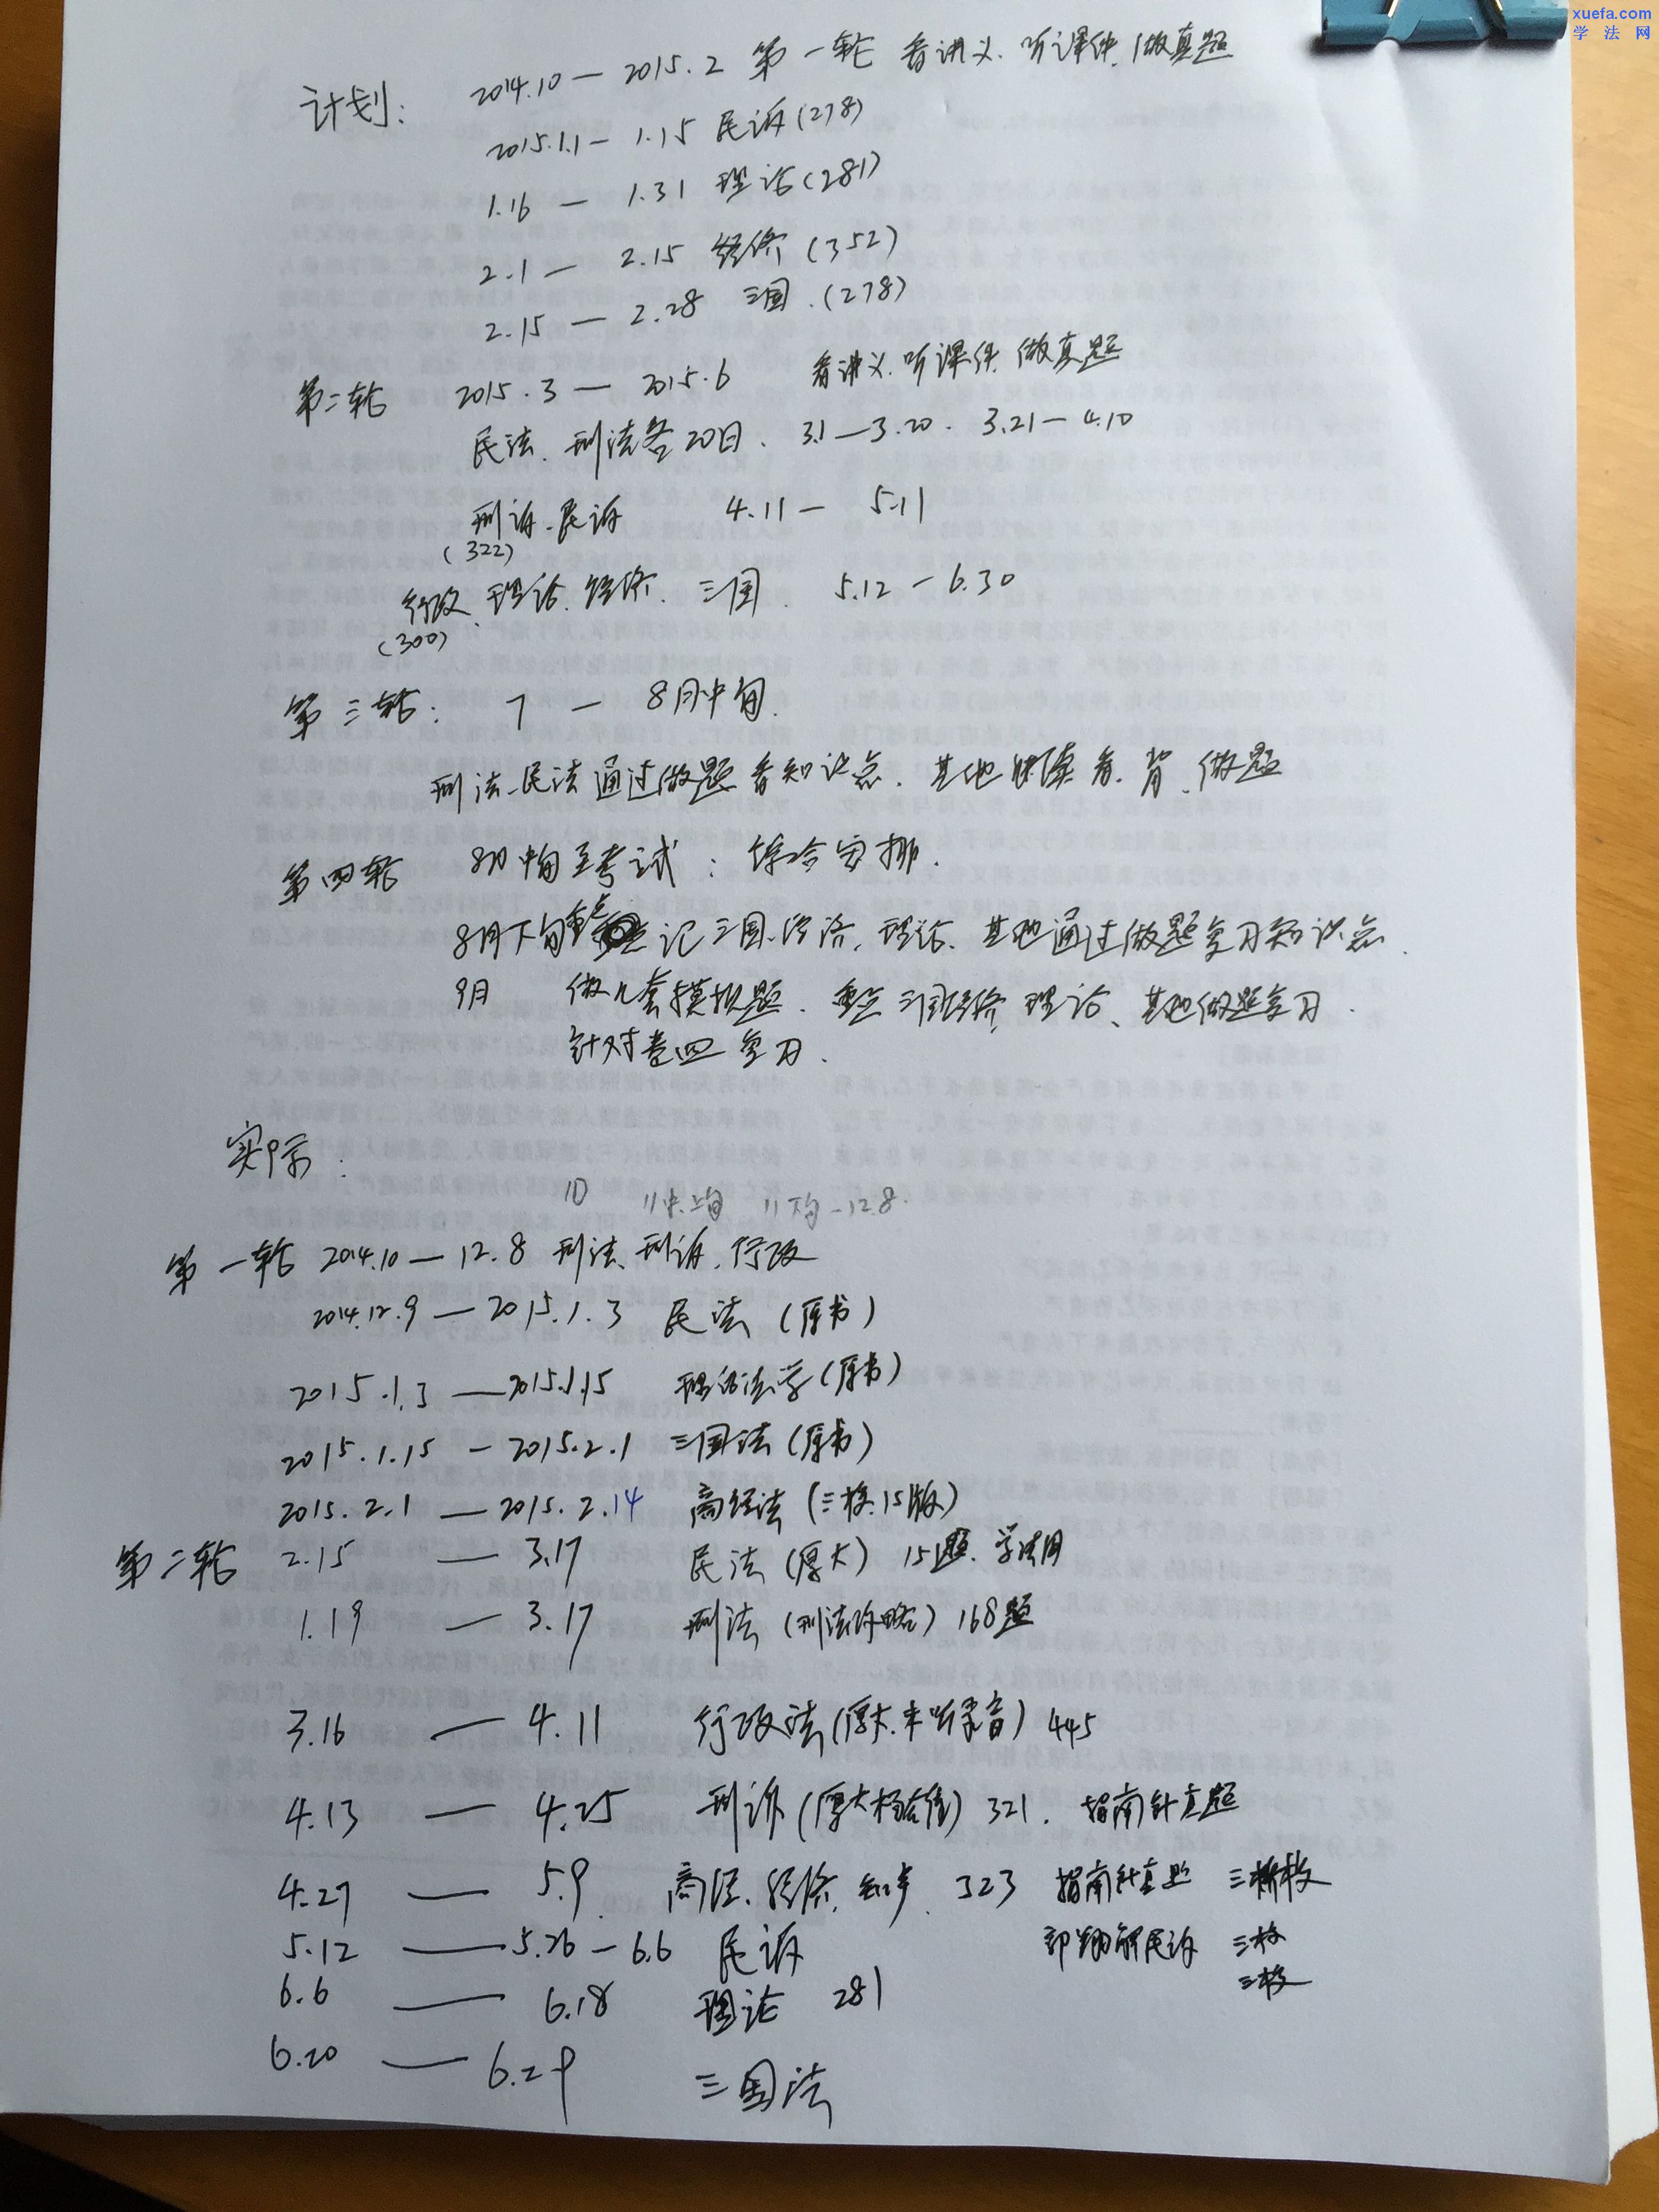 xuefa.com
学 法 网
计划: 2014.10 — 2015.2 第一轮 看讲义、听课件、做真题
2015.1.1 — 1.15 民诉(278)
1.16 — 1.31 理论(281)
2.1 — 2.15 经济(352)
2.15 — 2.28 三国.(278)
第二轮 2015.3 — 2015.6 看讲义、听课件、做真题
民法、刑法各20日. 3.1 — 3.20. 3.21 — 4.10
刑诉、民诉 4.11 — 5.11
(322)
行政、理论、经济、三国. 5.12 — 6.30
(300)
第三轮: 7 — 8月中旬.
刑法、民法通过做题看知识点. 其他快速看、背、做题
第四轮 8月中旬至考试: 综合安排.
8月下旬 记三国、经济、理论、其他通过做题复习知识点.
9月 做几套模拟题. 重点三国经济、理论、其他做题复习.
针对卷四复习.
实际:
10 11中.上旬 11下旬-12.8.
第一轮 2014.10 — 12.8 刑法、刑诉、行政
2014.12.9 — 2015.1.3 民法 (厚书)
2015.1.3 — 2015.1.15 理论法学(厚书)
2015.1.15 — 2015.2.1 三国法(厚书)
2015.2.1 — 2015.2.14 商经法 (三校.15版)
第二轮 2.15 — 3.17 民法 (厚大) 15题、学法网
1.19 — 3.17 刑法 (刑法攻略) 168题
3.16 — 4.11 行政法(厚大.未听录音) 445
4.13 — 4.25 刑诉(厚大杨雄) 321. 指南针真题
4.27 — 5.9. 商经、经济、知产. 323 指南针真题 三校
5.12 — 5.26 — 6.6 民诉 郭翔解民诉 三校
6.6 — 6.18 理论 281 三校
6.20 — 6.29 三国法